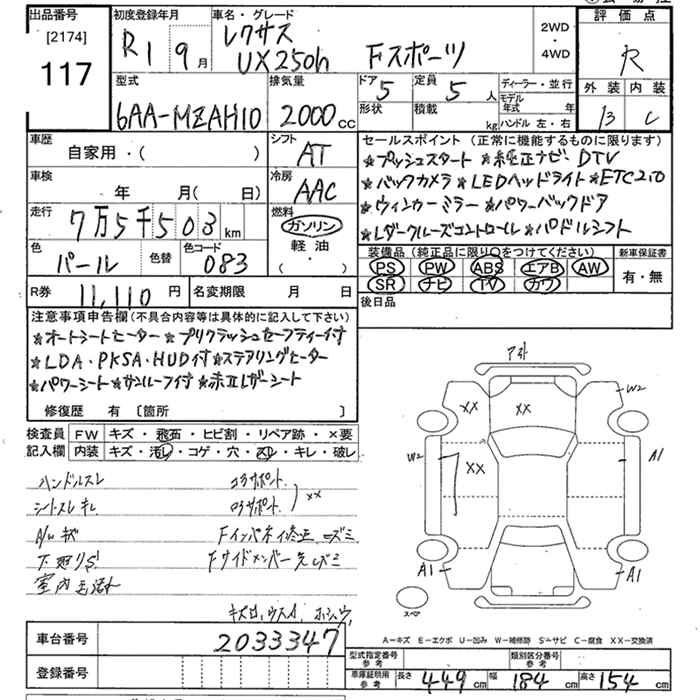 出品番号
[2174]
117
初度登録年月
R1 9月
車名・グレード
レクサス
UX250h Fスポーツ
2WD
・
4WD
評価点
R
外装 内装
B C
型式
6AA-MZAH10
排気量
2000cc
ドア 5
定員 5人
形状
積載 kg
ディーラー・並行
モデル年式 年
ハンドル 左・右
車歴
自家用・( )
シフト
AT
車検
年 月(日)
冷房
AAC
走行
7万5千503km
燃料
ガソリン
軽油
( ・ )
色
パール
色替
色コード
083
R券 11,110円
名変期限 月 日
セールスポイント(正常に機能するものに限ります)
★プッシュスタート ★純正ナビ DTV
★バックカメラ ★LEDヘッドライト ★ETC2.0
★ウィンカーミラー ★パワーバックドア
★レダークルーズコントロール ★パドルシフト
装備品(純正品に限り○をつけてください)
PS PW ABS エアB AW
SR ナビ TV カワ
新車保証書
有・無
後日品
注意事項申告欄(不具合内容等は具体的に記入して下さい)
★オートシートヒーター ★プリクラッシュセーフティー付
★LDA・PKSA・HUD付 ★ステアリングヒーター
★パワーシート ★サンルーフ付 ★赤革レザーシート
修復歴 有 〔箇所 〕
検査員記入欄
FW キズ・飛石・ヒビ割・リペア跡・×要
内装 キズ・汚れ・コゲ・穴・スレ・キレ・破レ
ハンドルスレ
シートスレキレ
A/Wキズ
下廻りサビ
室内毛汚れ
コアサポート
ロアサポート
××
Fインパネ修正 ユズミ
Fサイドメンバー先ユズミ
アト
XX XX
XX
W2
W2
A1
A1
A1
スペア
A－キズ E－エクボ U－凹み W－補修跡 S－サビ C－腐食 XX－交換済
車台番号 2033347
登録番号
型式指定番号 参考
類別区分番号 参考
車庫証明用 参考
長さ 449cm
幅 184cm
高さ 154cm